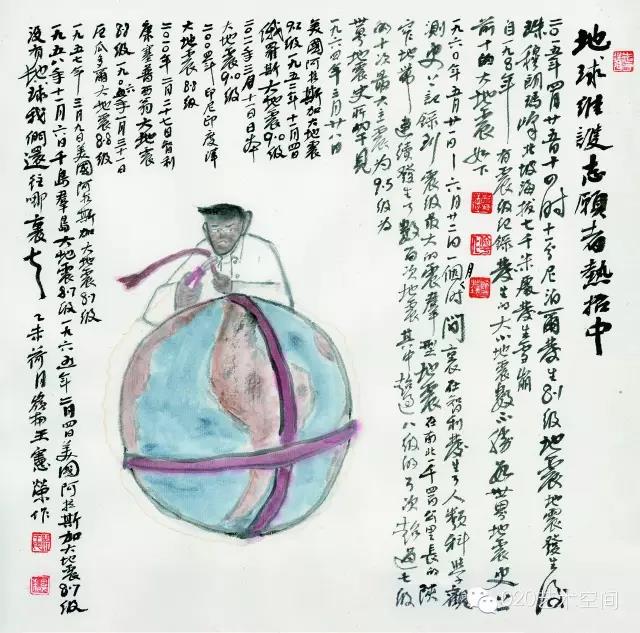 地球維護志願者熱招中
二〇一五年四月廿五日十四时十一分尼泊爾發生8.1级地震地震發生後
珠穆朗瑪峰北坡海拔七千米處發生雪崩
自一九〇〇年一有震级纪錄發生的大小地震數不勝
世界地震史上
前十的大地震如下
一九六〇年五月廿一日一六月廿二日一個月时間裏在智利發生了人類科學觀
測史公記錄到震级最大的震羣型地震在南北千四百公里長的狹
窄地带連續發生了數百次地震其中超過八级的3次超過七级
的十次最大主震为9.5级为
世界地震史所罕見
一九六四年三月廿八日
美國阿拉斯加大地震
9.2级一九五二年十一月四日
俄羅斯大地震9.0级
二〇一一年三月十一日日本
大地震9.0级
二〇〇四年印尼印度洋
大地震8.9级
二〇一〇年二月二十七日智利
康塞普西翁大地震
8.8级一九〇六年一月三十一日
厄瓜多爾大地震8.8级
一九五七年三月九日美國阿拉斯加大地震8.7级
一九五八年十一月六日千島羣島大地震8.7级一九六五年二月四日美國阿拉斯加大地震8.7级
没有地球我们還往哪裏去
乙未荷月於北王憲榮作
020艺术空间